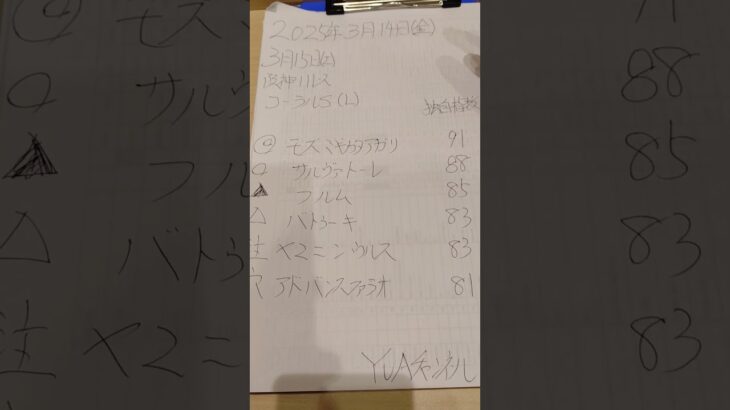 2025年3月14日(金)
3月15日(土)
阪神11レス
コーラルS(L)
独自指数
◎ モズミギカタアガリ 91
○ サルヴァトーレ 88
▲ フルム 85
△ バトゥーキ 83
注 ヤマニンウルス 83
穴 アドバンスファラオ 81
YUAチャンネル